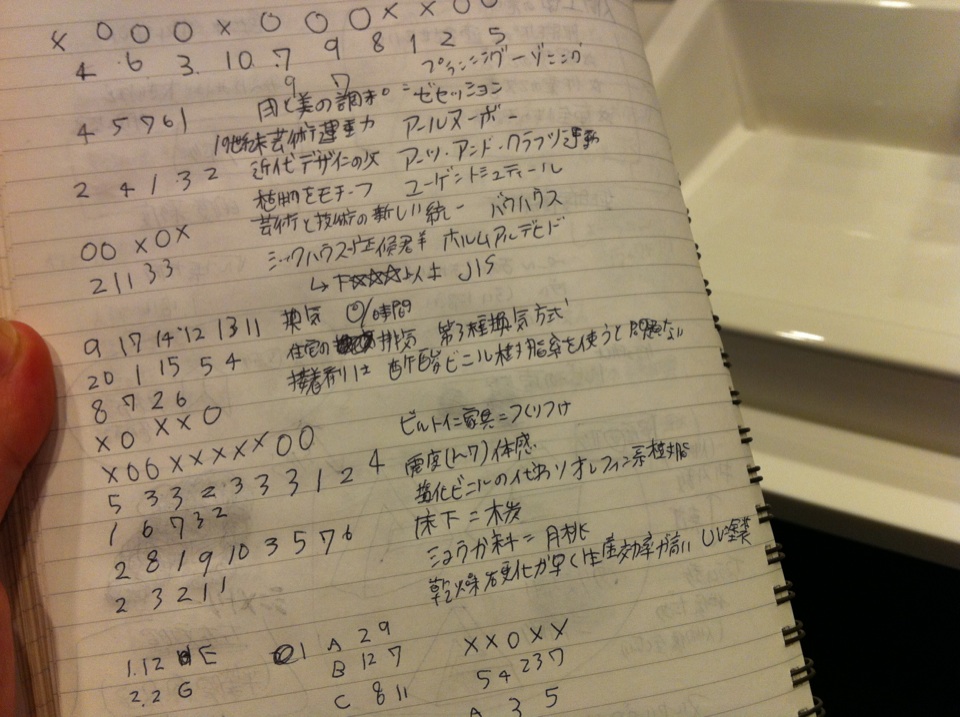 × ○ ○ ○ × ○ ○ ○ × × ○ ○
4 6 3. 10. 7 9 8 1 2 5 プランニング-ゾニング
9 7
用と美の調和 = ゼセッション
4 5 7 6 1 19世紀末芸術運動 アールヌーボー
近代デザインの父 アーツ・アンド・クラフツ運動
2 4 1 3 2 植物をモチーフ ユーゲントシュティール
芸術と技術の新しい統一 バウハウス
○○×○× シックハウス症候群 ホルムアルデヒド
2 1 1 3 3 → F☆☆☆以上 JIS
9 17 14 12 13 11 換気 回/時間
20 1 15 5 4 住宅の 排気 第3種換気方式
8 7 2 6 接着剤は 酢酸ビニル樹脂系を使うと問題ない
×○××○
×○○×××××○○ ビルトイン家具=つくりつけ
5 3 3 2 3 3 3 1 2 4 震度(1~7)体感
1 6 7 3 2 塩化ビニルの代わりオレフィン系樹脂
2 8 1 9 10 3 5 7 6 床下=木炭
2 3 2 1 1 ショウガ科=月桃
乾燥硬化が早く生産効率が高い UV塗装
1.12 E 1 A 29 ××○××
2.2 G B 12 7 5 4 2 3 7
C 8 11 A 3 5